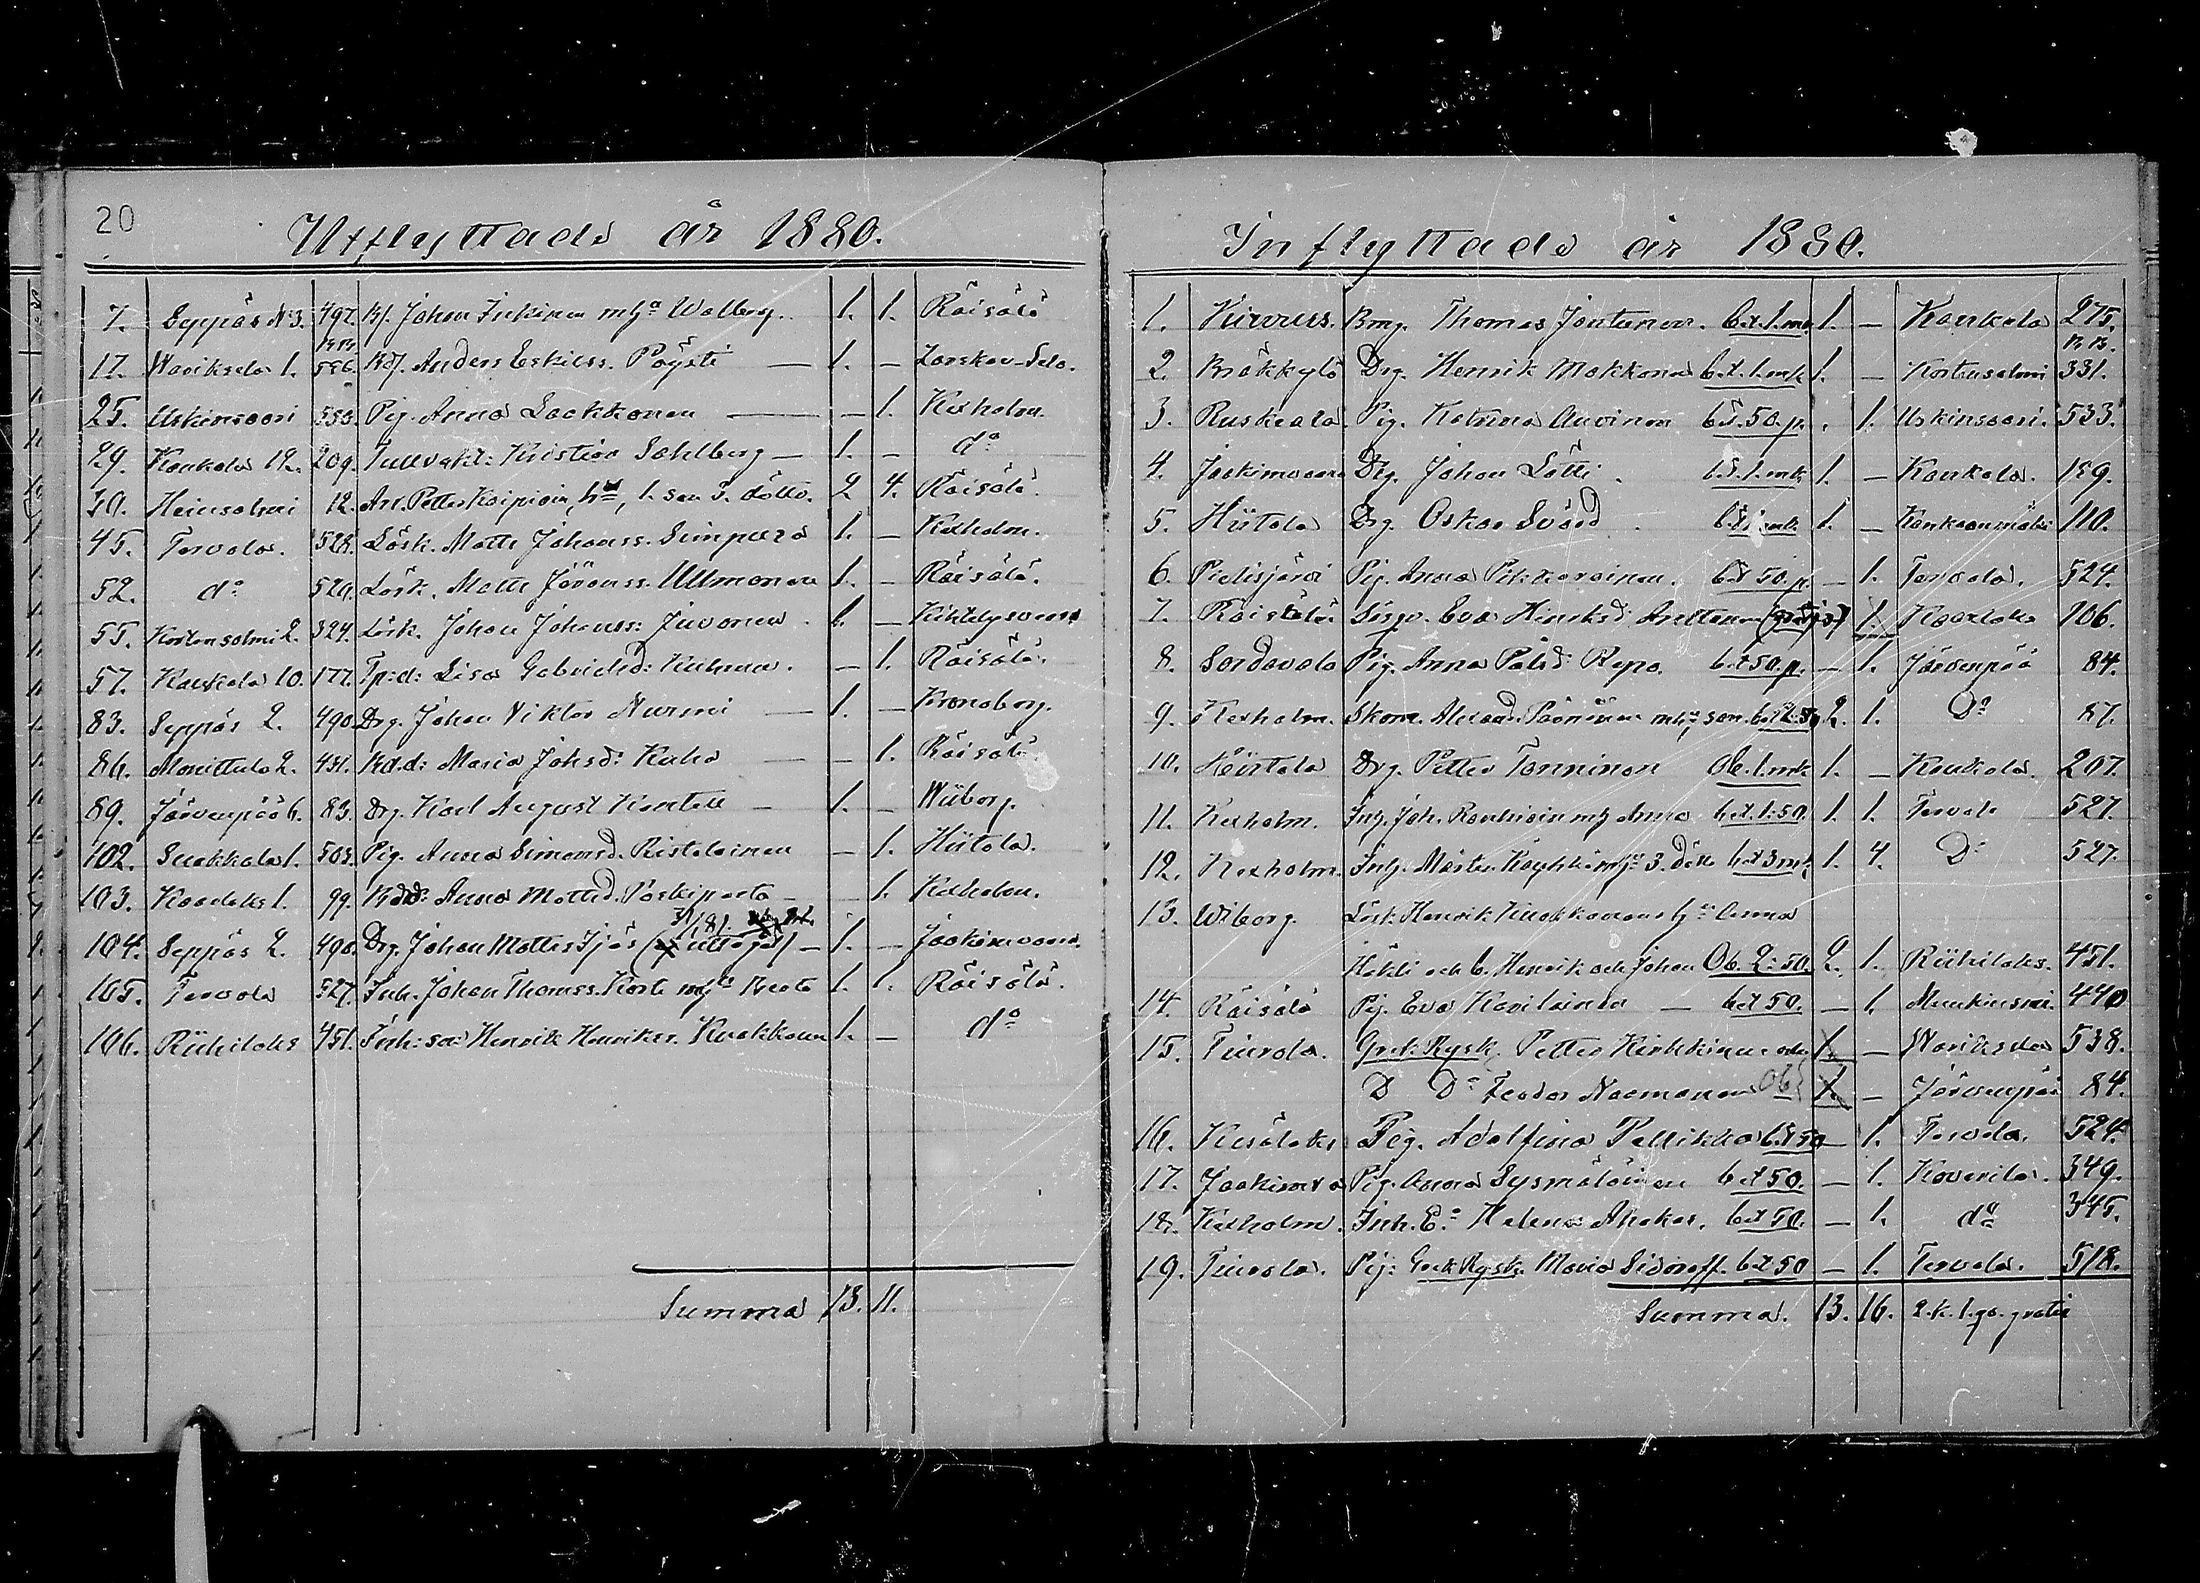 20
Utflyttade år 1880.
7. Seppäs No 3. 497. Bf. Johan Inkinen m ha Walborg. 1. 1. Räisälä
17. Wariksela 1. 556. Anders Eskilss. Pöysti — 1. — Zarskoe-Selo.
25. Uskinsaari 533. Pig. Anna Laakkonen — — 1. Kexholm
29. Kaukola 12. 209. Tullvakt: Kristian Sahlberg — 1. — do
30. Heinsalmi 12. Arr. Petter Kaipiain, hu, 1. son 3. döttr. 2 4. Räisälä.
45. Tervola. 528. Lösk. Matts Johanss. Simpura 1. — Kexholm.
52. do 520. Lösk. Matts Göranss. Ullmonen 1. — Räisälä.
55. Kortensalmi 2. 324. Lösk. Johan Johanss: Juvonen. 1. — Kihtelysvaara
57. Kaukola 10. 177. Tp:d: Lisa Gabrielsd: Kuhnen. — 1. Räisälä.
83. Seppäs 2. 490. Drg. Johan Viktor Nurmi — 1. — Kronoborg.
86. Monittula 2. 431. Kd.d: Maria Johsd: Kuha — — 1. Räisälä
89. Järvenpää 6. 83. Drg. Karl August Kontell — 1. — Wiborg.
102. Suokkala 1. 503. Pig. Anna Simonsd. Ristolainen — 1. Hiitola.
103. Kaarlaks 1. 99. Anna Mattsd. Paskiparta — — 1. Kexholm.
3/1 81.
104. Seppäs 2. 490. Drg. Johan Matts Ijäs ( ) — 1. — Jaakimvaara.
105. Tervola 527. Inh. Johan Thomss. Korte m hu Beata 1. 1. Räisälä.
106. Riihilaks 451. Inh: son: Henrik Henrikss. Kuokkanen 1. — do
Summa 13. 11.
Inflyttade år 1880.
1. Kuivus. Bmg. Thomas Jantunen. bet. 1. mk 1. — Kaukola 275.
2. Bräkkylä Drg. Henrik Mokkonen bet. 1. mk 1. — Kortensalmi 331.
3. Ruskeala Pig. Katrina Auvinen bet. 50. p. . 1. Uskinsaari. 533.
4. Jaakimvaara Drg. Johan Lötti. bet. 1. mk 1. — Kaukola. 159.
5. Hiitola Drg. Oskar Svärd. bet 1 mk 1. — Kankaanmäki 110.
6. Pielisjärvi Pig. Anna Pitkaranen. bet 50. p. — 1. Tervola. 524.
7. Räisälä. Eva Henriksd: Anttonen (gratis) 1. Kaarlaks 106.
8. Sordavala Pig. Anna Pålsd: Repo. bet 50. p. — 1. Järvenpää 84.
9. Kexholm. Skom. Alexand. Päonönen m hu, son. bet 2. 50 2. 1. Do 87.
10. Hiitola Drg. Petter Tanninen Ob. 1. mk 1. — Kaukola. 207.
11. Kexholm. Inh. Joh. Rautiain m h Anna bet. 1:50. 1. 1. Tervola 527.
12. Kexholm. Inh. Mårten Käyhkö m hu 3. dött bet 3 mk 1. 4. Do 527.
13. Wiborg. Lösk. Henrik Kuokkanen hu Anna
Häkli och b. Henrik och Johan Ob. 2:50. 2. 1. Riihilaks. 451.
14. Räisälä Pig. Eva Karilainen — bet 50. — 1. Munkinsaari 440
15. Tiurola. Grek. Rysk. Petter Kirhkinen och 1. — Wariksela 538.
D Do Feodor Naemanen Ob 1. — Järvenpää 84.
16. Kesälaks Pig. Adolfina Pellikka bet 50 — 1. Tervola. 524.
17. Jaakimva Pig. Anna Sysmäläinen bet 50. — 1. Koverila. 349.
18. Kexholm. Inh. Ea Helena Ahokas. bet 50. — 1. do 345.
19. Tiurola. Pig: Grek Rysk. Maria Sidoroff. bet 50 — 1. Tervola. 518.
Summa. 13. 16. 2. k. 1. qv. gratis